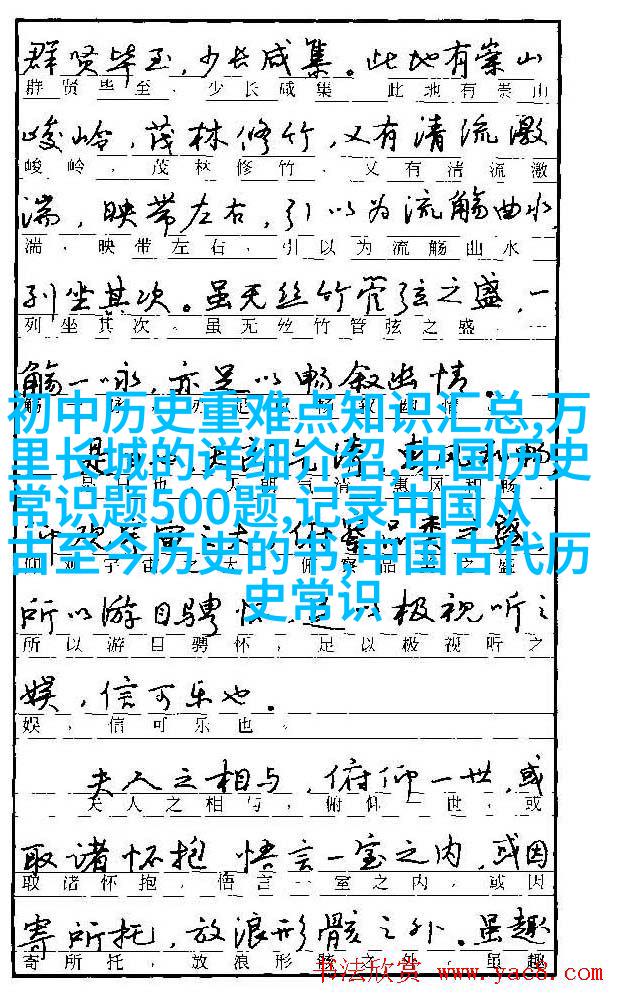 群贤毕至,少长咸集。此地有崇山
群贤毕至,少长咸集 此地有崇山
峻岭,茂林修竹,又有清流激
峻岭,茂林修竹,又有清流激
湍,映带左右,引以为流觞曲水,
湍,映带左右,引以为流觞曲水
列坐其次。虽无丝竹管弦之盛,一
列坐其次。虽无丝竹管弦之盛 一
觞一咏,亦足以畅叙幽情。
初中历史重难点知识汇总,万
里长城的详细介绍,中国历史
常识题500题,记录中国从
古至今历史的书,中国古代历
史常识
所以游目骋怀,足以极视听之
所以游目骋怀,足以极视听之
娱,信可乐也。
娱,信可乐也。
夫人之相与,俯仰一世,或
夫人之相与,俯仰一世,或
取诸怀抱 悟言一室之内,或因
取诸怀抱,悟言一室之内,或因
寄所托,放浪形骸之外。虽趣
寄所托,放浪形骸之外。虽趣
书法欣赏 www.yac8.com